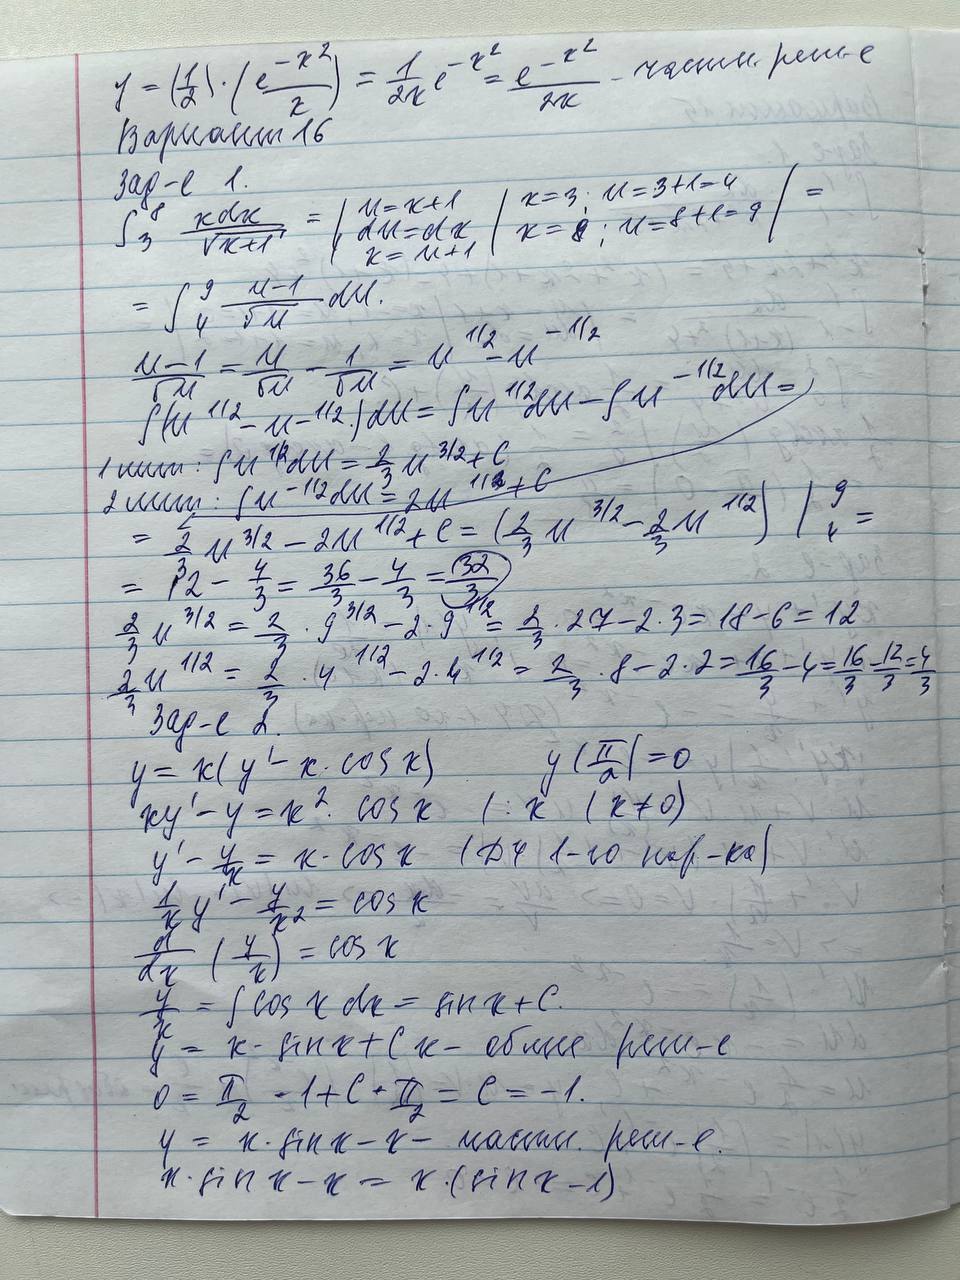 y = (1/2) · (e^{-x²}/x) = 1/2x e^{-x²} = e^{-x²}/2x - частн. реш-е
Вариант 16
Зад-е 1.
∫_3^8 xdx/√(x+1) = | u=x+1 du=dx x=u+1 | x=3; u=3+1=4 x=8; u=8+1=9 | =
= ∫_4^9 (u-1)/√u du.
(u-1)/√u = u/√u - 1/√u = u^{1/2} - u^{-1/2}
∫(u^{1/2} - u^{-1/2})du = ∫u^{1/2}du - ∫u^{-1/2}du =
1 инт: ∫u^{1/2}du = 2/3 u^{3/2} + C
2 инт: ∫u^{-1/2}du = 2u^{1/2} + C
= 2/3 u^{3/2} - 2u^{1/2} + C = (2/3 u^{3/2} - 2/3 u^{1/2}) |_4^9 =
= 12 - 4/3 = 36/3 - 4/3 = 32/3
2/3 u^{3/2} = 2/3 · 9^{3/2} - 2·9^{1/2} = 2/3 · 27 - 2·3 = 18-6 = 12
2/3 u^{1/2} = 2/3 · 4^{1/2} - 2·4^{1/2} = 2/3 · 8 - 2·2 = 16/3 - 4 = 16/3 - 12/3 = 4/3
Зад-е 2.
y = x(y' - x·cos x) y(π/2) = 0
xy' - y = x²·cos x |:x (x≠0)
y' - y/x = x·cos x (ДУ 1-го пор-ка)
1/x y' - y/x² = cos x
d/dx (y/x) = cos x
y/x = ∫cos x dx = sin x + C.
y = x·sin x + Cx - общие реш-е
0 = π/2 · 1 + C · π/2 = C = -1.
y = x·sin x - x - частн. реш-е.
x·sin x - x = x·(sin x - 1)